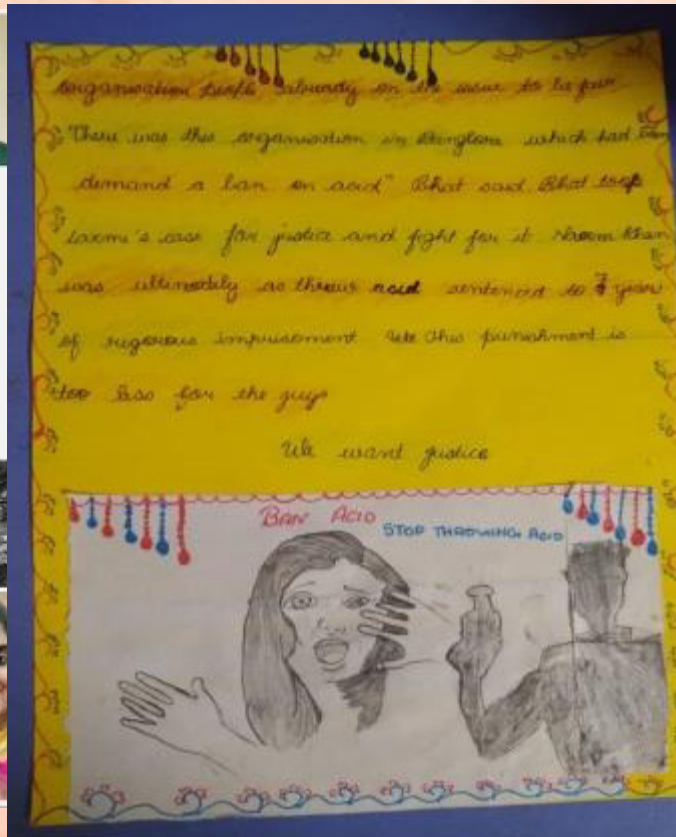 organisation people already on the issue to be fair
"There was this organisation in Banglore which had
demand a ban on acid" Bhat said. Bhat took
Laxmi's case for justice and fight for it. Naeem Khan
was ultimately as throws acid sentenced to 7 year
of rigorous imprisoment this punishment is
too less for the guys
We want justice
BAN ACID
STOP THROWING ACID